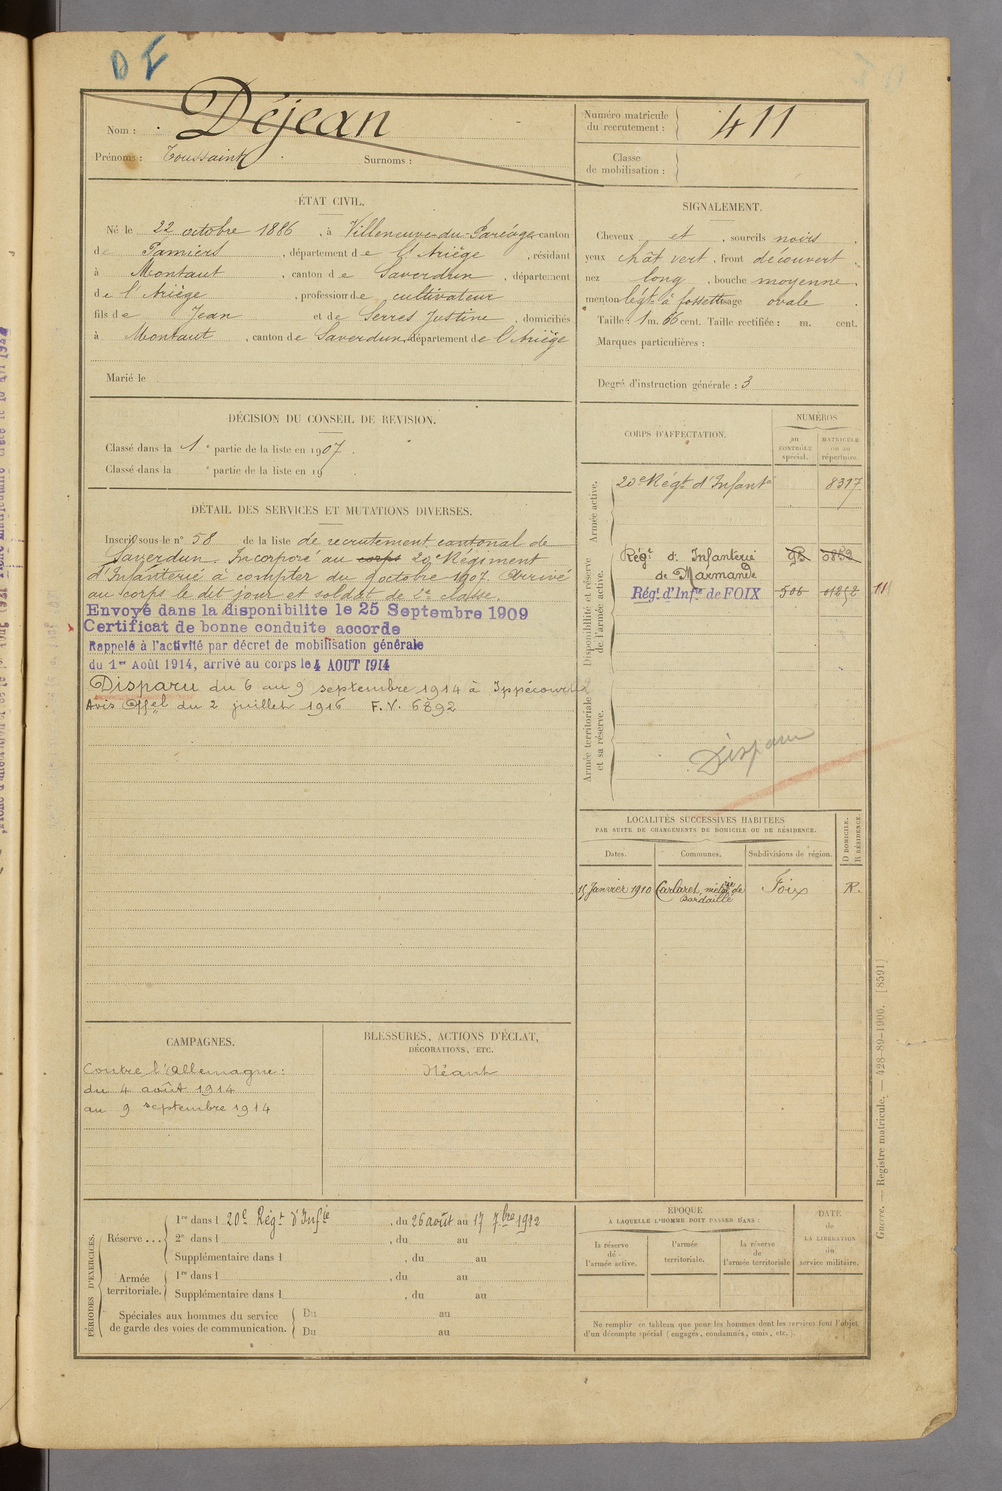 DE
Nom : Déjean
Prénoms : Toussaint. Surnoms :
Numéro matricule du recrutement : 411
Classe de mobilisation :
ÉTAT CIVIL.
Né le 22 octobre 1886, à Villeneuve-du-Paréage canton
de Pamiers, département de l'Ariège, résidant
à Montaut, canton de Saverdun, département
de l'Ariège, profession de cultivateur
fils de Jean et de Serres Justine, domiciliés
à Montaut, canton de Saverdun, département de l'Ariège
Marié le
SIGNALEMENT.
Cheveux et, sourcils noirs.
yeux chât vert, front découvert
nez long, bouche moyenne
menton légt à fossette visage ovale.
Taille : 1 m. 66 cent. Taille rectifiée : m. cent.
Marques particulières :
Degré d'instruction générale : 3
DÉCISION DU CONSEIL DE REVISION.
Classé dans la 1e partie de la liste en 1907.
Classé dans la e partie de la liste en 19
DÉTAIL DES SERVICES ET MUTATIONS DIVERSES.
Inscrit sous le n° 58 de la liste de recrutement cantonal de
Saverdun. Incorporé au corps 20e Régiment
d'Infanterie à compter du octobre 1907. Arrivé
au corps le dit jour et soldat de 2e classe.
Envoyé dans la disponibilite le 25 Septembre 1909
Certificat de bonne conduite accorde
Rappelé à l'activité par décret de mobilisation générale
du 1er Août 1914, arrivé au corps le 4 AOUT 1914
Disparu du 6 au 9 septembre 1914 à Ippécourt
Avis Offel du 2 juillet 1916 F.V. 6892
CORPS D'AFFECTATION.
NUMÉROS
au CONTRÔLE spécial.
MATRICULE ou au répertoire.
Armée active.
20e Régt d'Infante 8317
Disponibilité et réserve de l'armée active.
Régt d'Infanterie
de Marmande
Régt d'Infrie de FOIX 506 01252 111
Armée territoriale et sa réserve.
Disparu
LOCALITÉS SUCCESSIVES HABITÉES
PAR SUITE DE CHANGEMENTS DE DOMICILE OU DE RÉSIDENCE.
Dates.
Communes.
Subdivisions de région.
D DOMICILE.
R RÉSIDENCE.
15 Janvier 1910 Carlaret, métairie de Bardaille Foix R.
CAMPAGNES.
Contre l'Allemagne :
du 4 août 1914
au 9 septembre 1914
BLESSURES, ACTIONS D'ÉCLAT,
DÉCORATIONS, ETC.
Néant
PÉRIODES D'EXERCICES.
Réserve . . .
1re dans l 20e Régt d'Infie, du 26 août au 17 7bre 1912
2e dans l , du au
Supplémentaire dans l , du au
Armée territoriale.
1re dans l , du au
Supplémentaire dans l , du au
Spéciales aux hommes du service
de garde des voies de communication.
Du au
Du au
ÉPOQUE
À LAQUELLE L'HOMME DOIT PASSER DANS :
la réserve de l'armée active.
l'armée territoriale.
la réserve de l'armée territoriale
DATE de LA LIBÉRATION du service militaire.
Ne remplir ce tableau que pour les hommes dont les services font l'objet
d'un décompte spécial (engagés, condamnés, omis, etc.).
Guerre. — Registre matricule. — 428-89-1906. [8591]